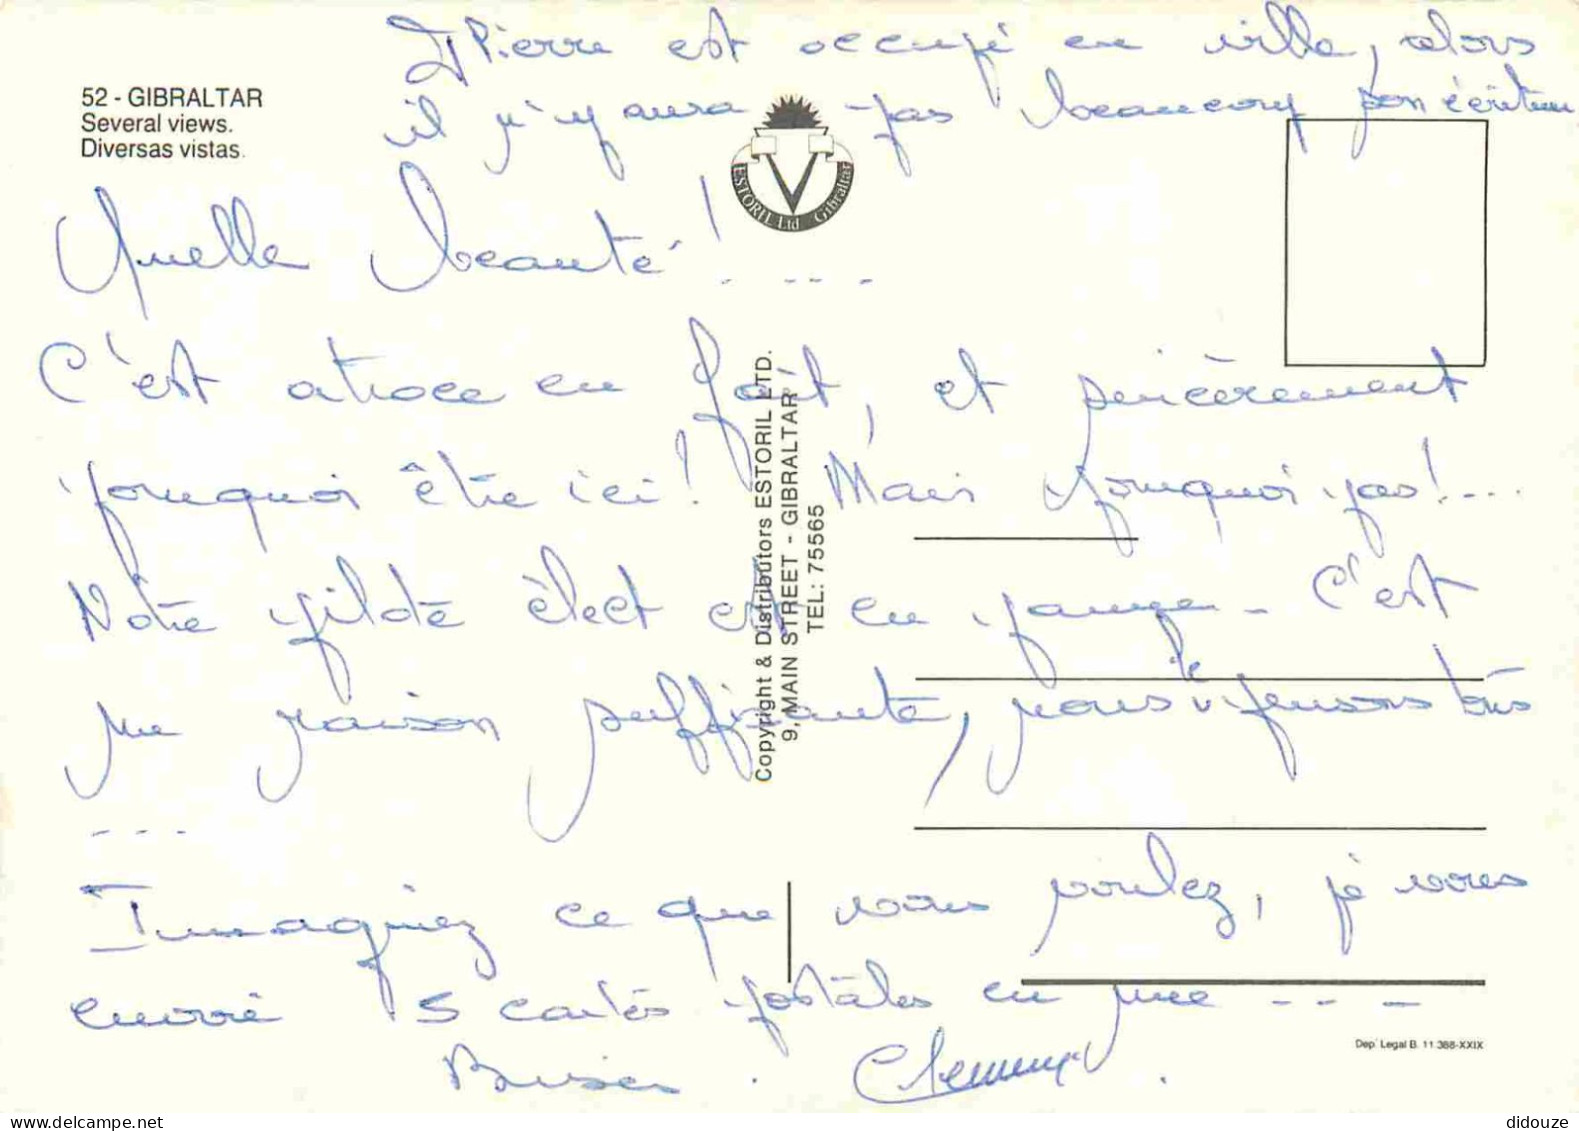 Pierre est occupé en ville, alors
il n'y aura pas beaucoup son écriture
52 - GIBRALTAR
Several views.
Diversas vistas.
ESTORIL Ltd Gibraltar
Quelle beauté ! . ...
C'est atroce en fait, et sincèrement
pourquoi être ici ! Mais pourquoi pas !...
Notre pilote élect est en panne. C'est
une raison suffisante, nous le pensons tous
...
Imaginez ce que vous voulez, je vous
envoie 5 cartes postales en une ...
Bises.
Copyright & Distributors ESTORIL LTD.
9, MAIN STREET - GIBRALTAR
TEL: 75565
Dep. Legal B. 11.388-XXIX
didouze